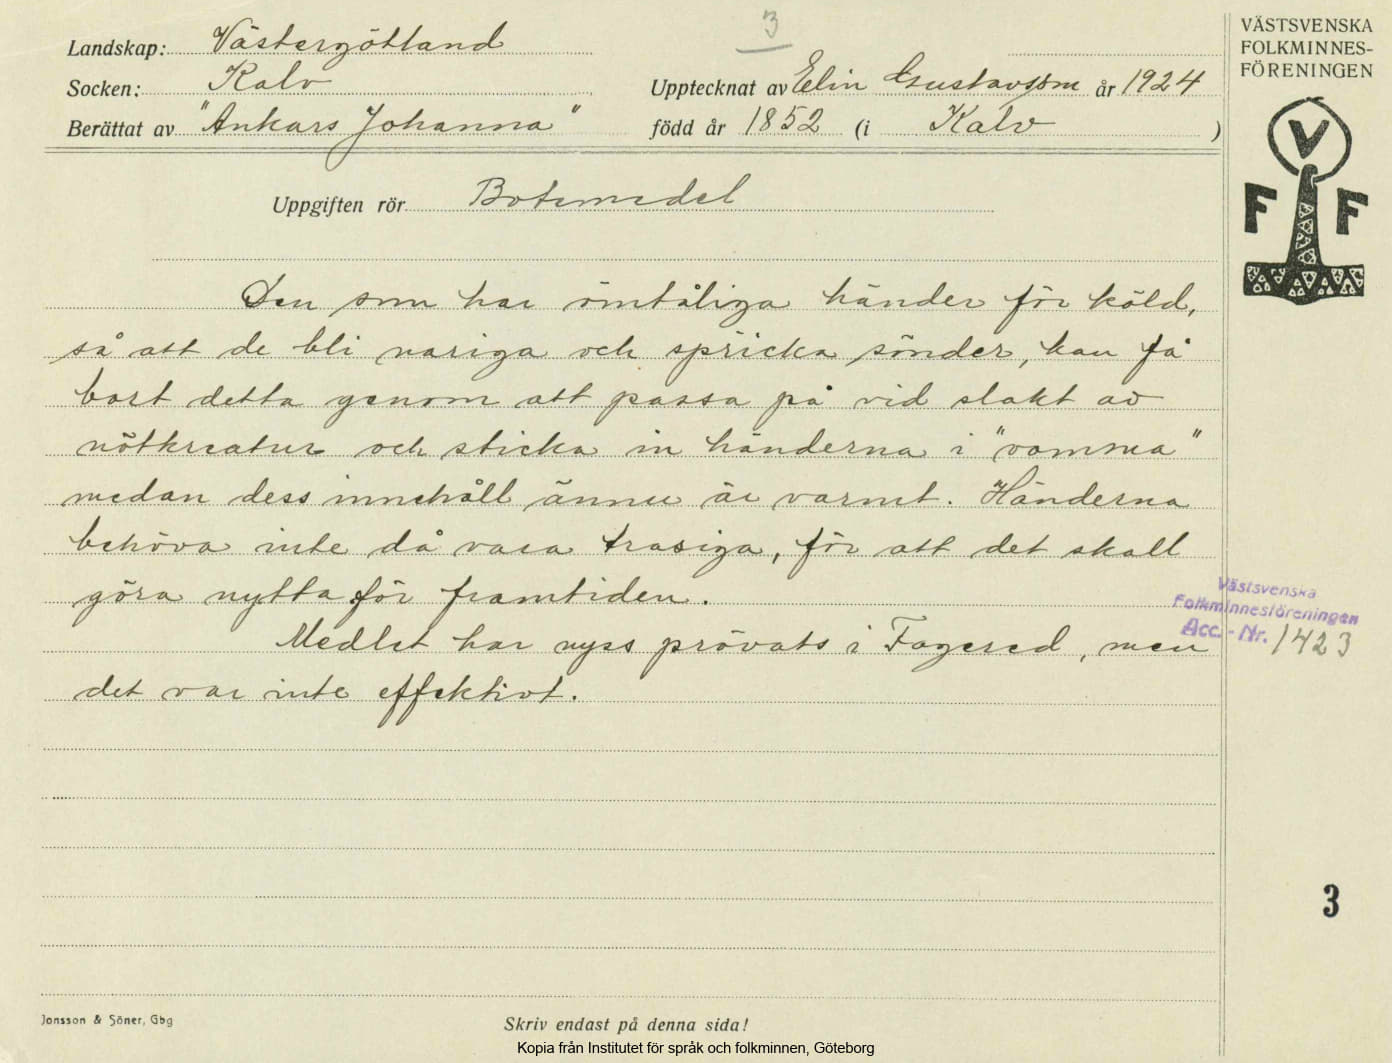 3
Landskap: Västergötland
Socken: Kalv
Upptecknat av Elin Gustavsson år 1924
Berättat av "Ankars Johanna"
född år 1852 (i Kalv)
Uppgiften rör Botemedel
Den som har ömtåliga händer för köld,
så att de bli nariga och spricka sönder, kan få
bort detta genom att passa på vid slakt av
nötkreatur och sticka in händerna i "vomma"
medan dess innehåll ännu är varmt. Händerna
behöva inte då vara trasiga, för att det skall
göra nytta för framtiden.
Medlet har nyss prövats i Fagered, men
det var inte effektivt.
VÄSTSVENSKA
FOLKMINNES-
FÖRENINGEN
V
F F
Västsvenska
Folkminnesföreningen
Acc.-Nr. 1423
3
Jonsson & Söner, Gbg
Skriv endast på denna sida!
Kopia från Institutet för språk och folkminnen, Göteborg